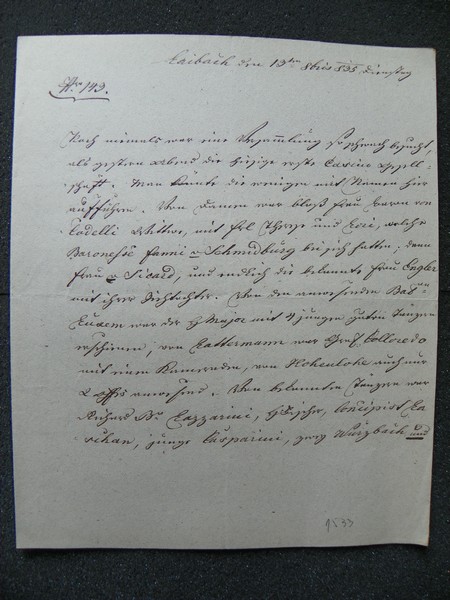 Laibach den 13ten 8bris 835 Dienstag
Nr 143.
Noch niemals war eine Versammlung so schwach besucht,
als gestern abends die hiesige erste Casino Gesell=
schaft. Man könnte die wenigen mit Namen hier
aufführen. Von Damen war bloß Frau Baron von
Codelli Witwe, mit Frl Therese und Loui, welche
Baronesse Fanni v Schmidburg bei sich hatten; dann
Frau v Sicard, und endlich die bekannte Frau Engler
mit ihrer Tochter. Von den anwesenden
war der H Major mit 4 jungen guten Tänzern
erschienen, von Lattermann war Graf Colloredo
mit einem Kameraden, von Hohenlohe auch nur
2 anwesend. Von bekannten Tänzern war
Richard Br Lazzarini, Concipist
junge Casparini, zwey Wurzbach und
1533